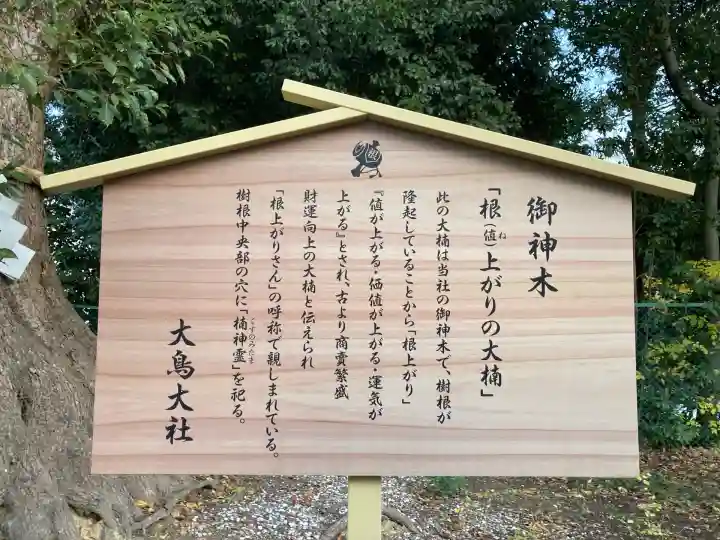 御神木
「根(値)上がりの大楠」
ね
此の大楠は当社の御神木で、樹根が
隆起していることから「根上がり」
『値が上がる・価値が上がる・運気が
上がる』とされ、古より商賣繁盛
財運向上の大楠と伝えられ
「根上がりさん」の呼称で親しまれている。
樹根中央部の穴に「楠神霊」を祀る。
くすのみたま
大鳥大社